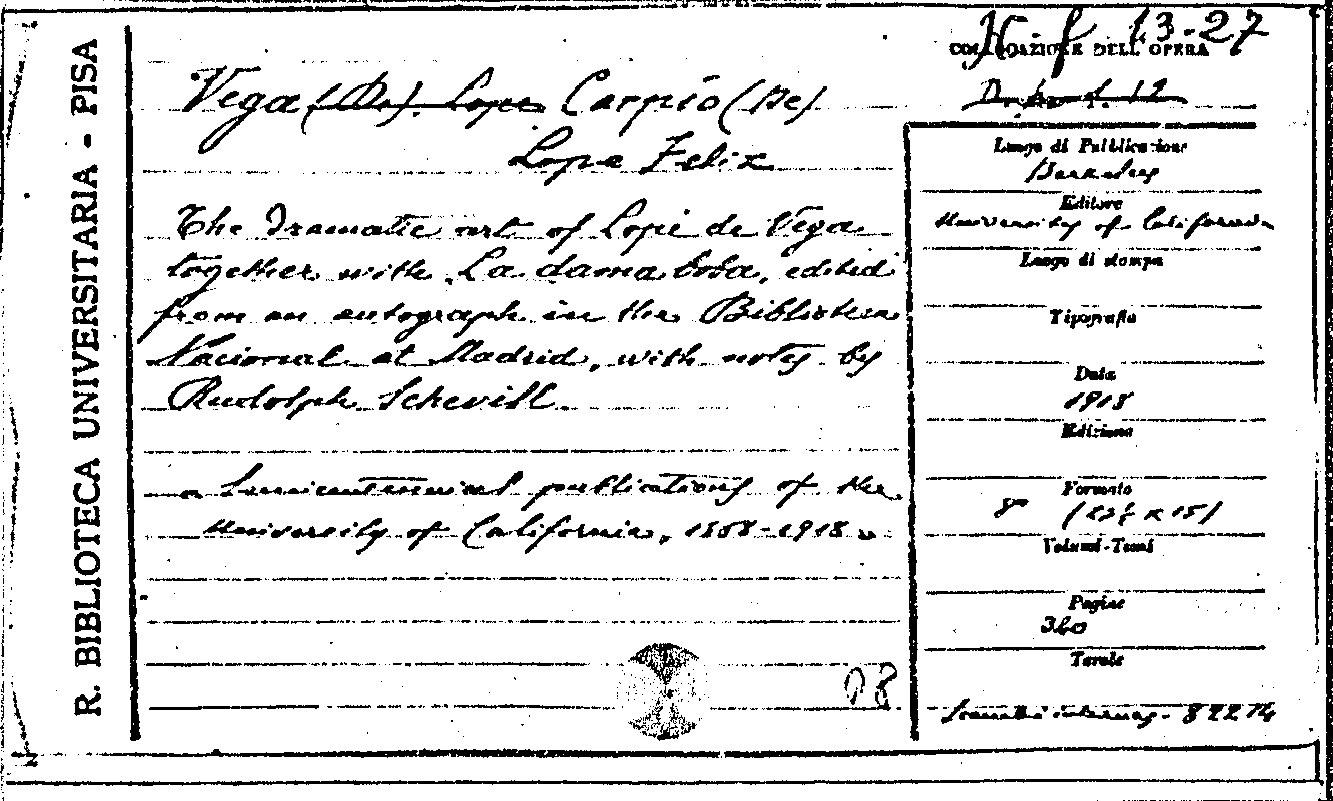 R. BIBLIOTECA UNIVERSITARIA - PISA
H. f. 13-27
COLLOCAZIONE DELL'OPERA
Vega (De). Lope Carpio (De)
Lope Felix
The Dramatic art of Lope de Vega
together with La dama boba, edited
from an autograph in the Biblioteca
Nacional at Madrid, with notes by
Rudolph Schevill.
« Semicentennial publications of the
University of California, 1868-1918 »
Luogo di Pubblicazione
Berkeley
Editore
University of California
Luogo di stampa
Tipografia
Data
1918
Edizione
Formato
8° (22½ x 15)
Volumi-Tomi
Pagine
360
Tavole
Scambi internaz. 82274